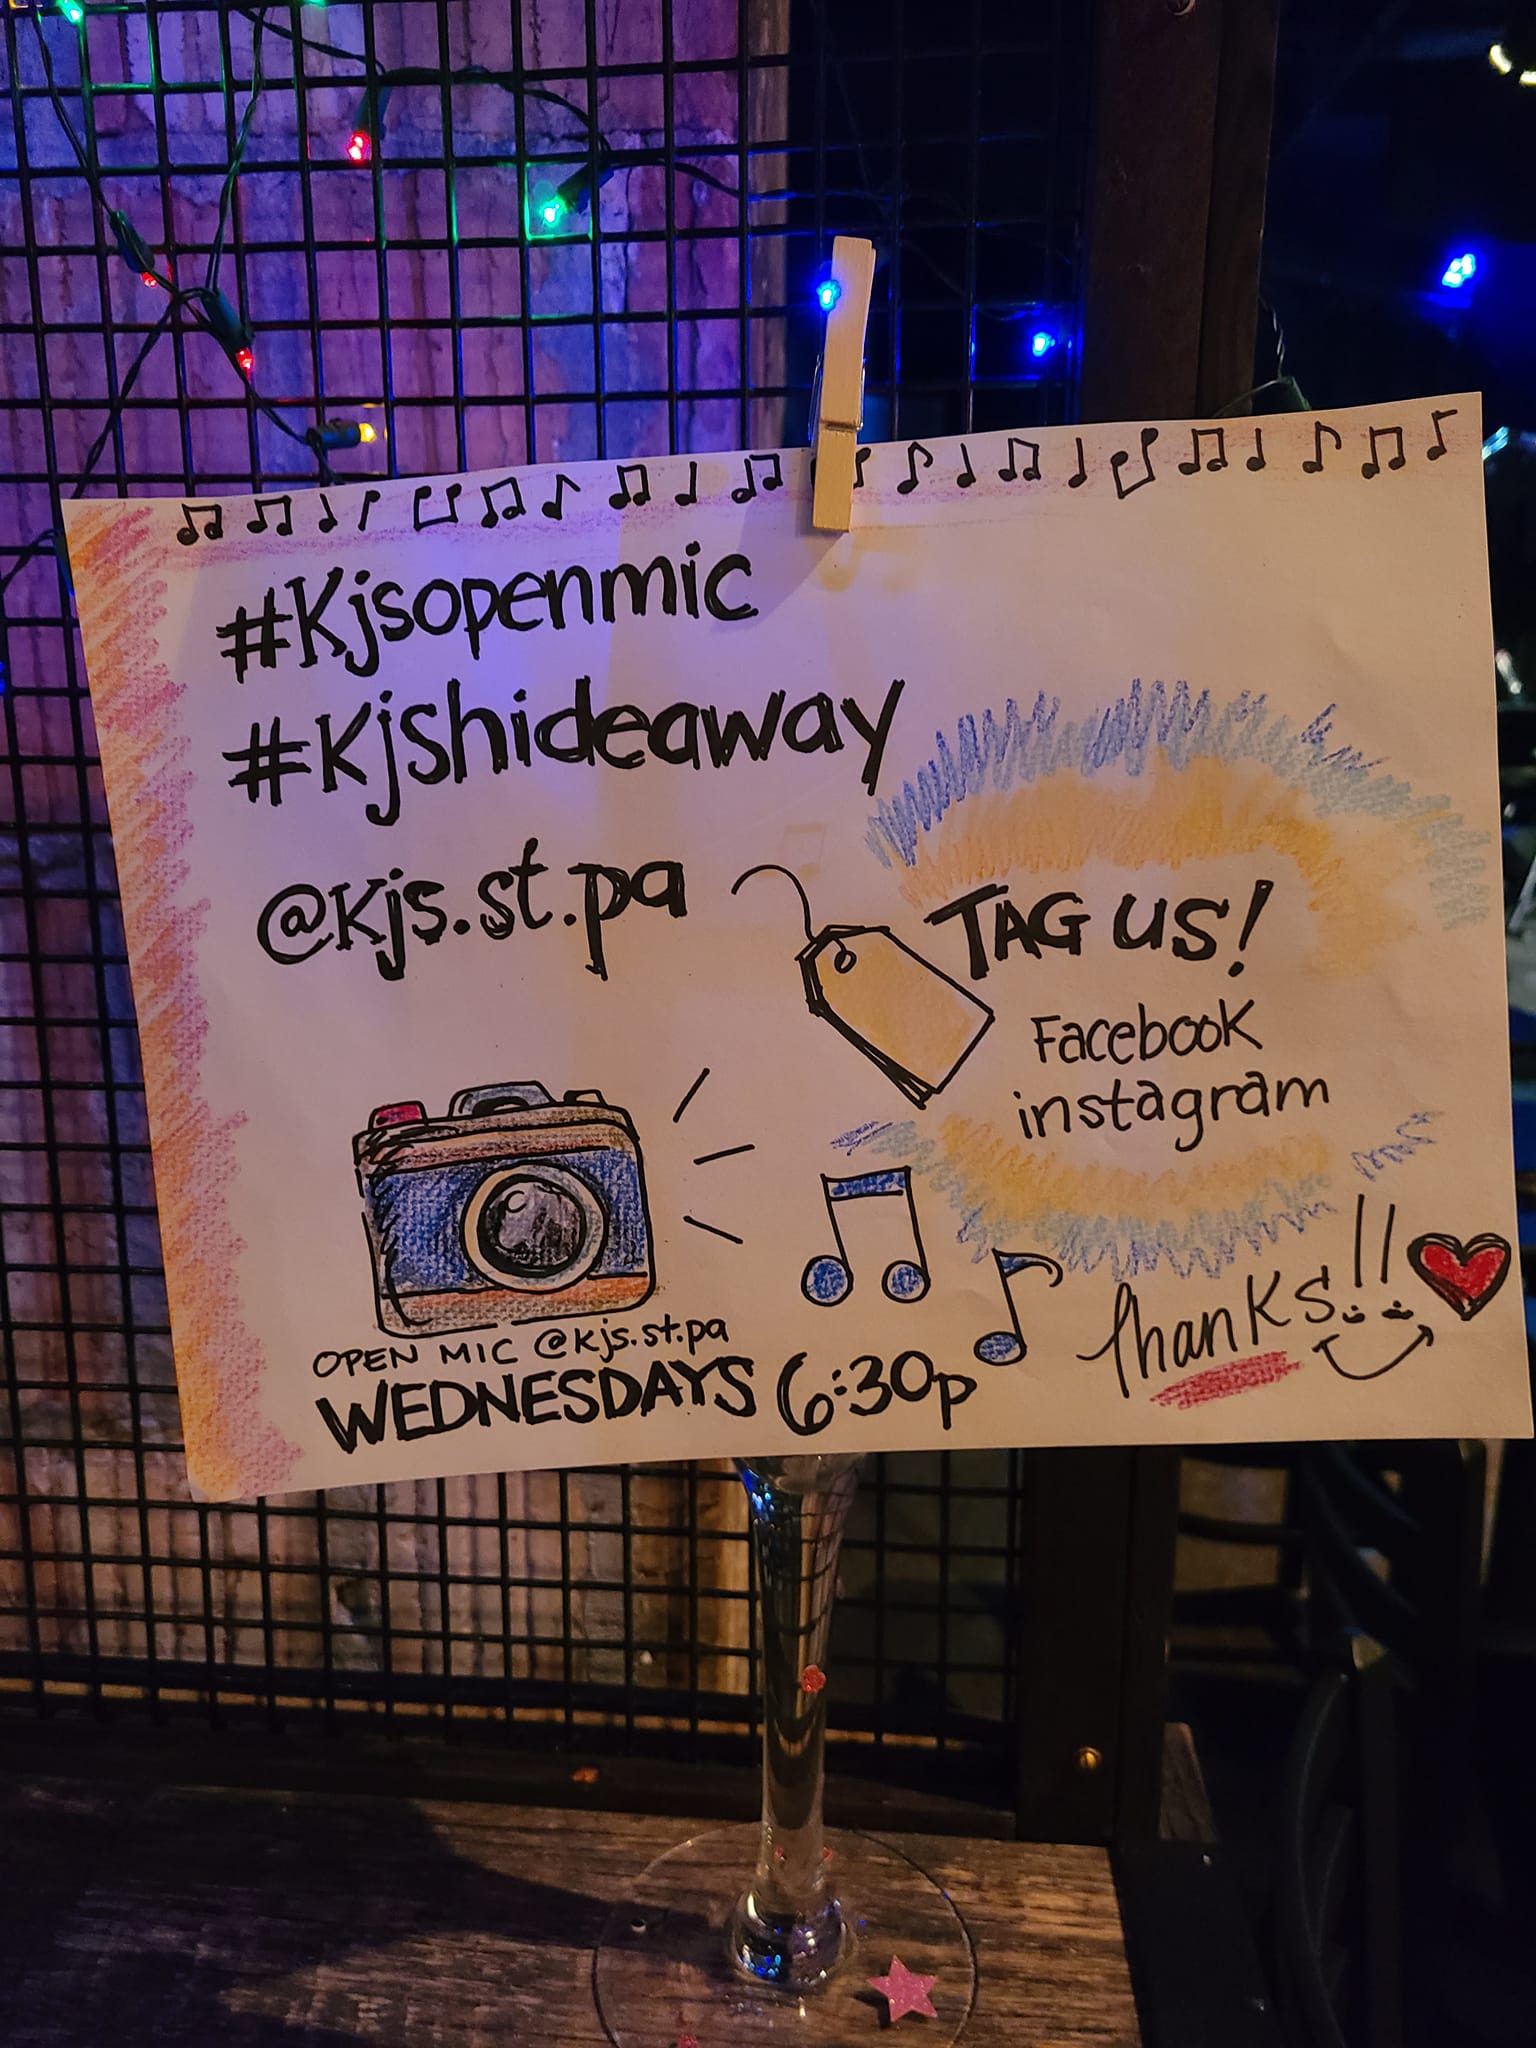 #Kjsopenmic
#Kjshideaway
@Kjs.st.pa
TAG US!
Facebook
instagram
Thanks!!
OPEN MIC @kjs.st.pa
WEDNESDAYS 6:30p